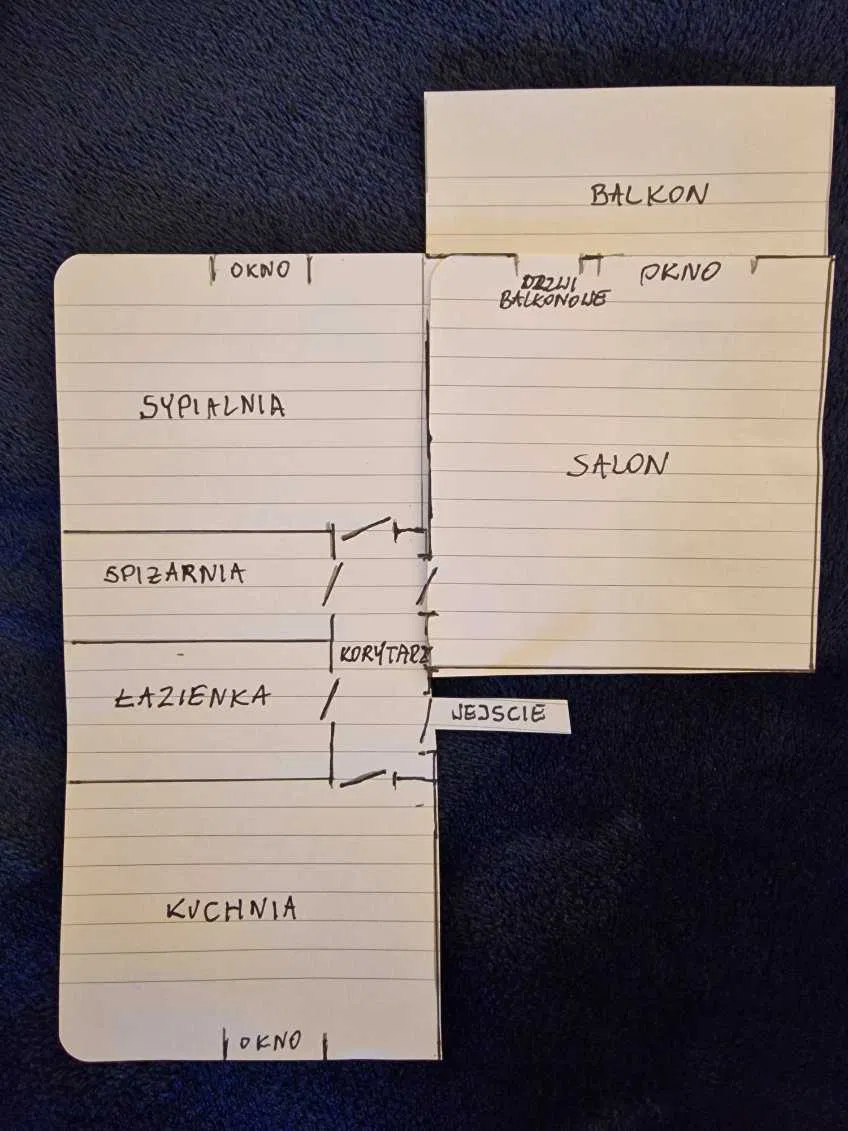 BALKON
OKNO
DRZWI
BALKONOWE
OKNO
SYPIALNIA
SALON
SPIŻARNIA
KORYTARZ
ŁAZIENKA
WEJSCIE
KUCHNIA
OKNO